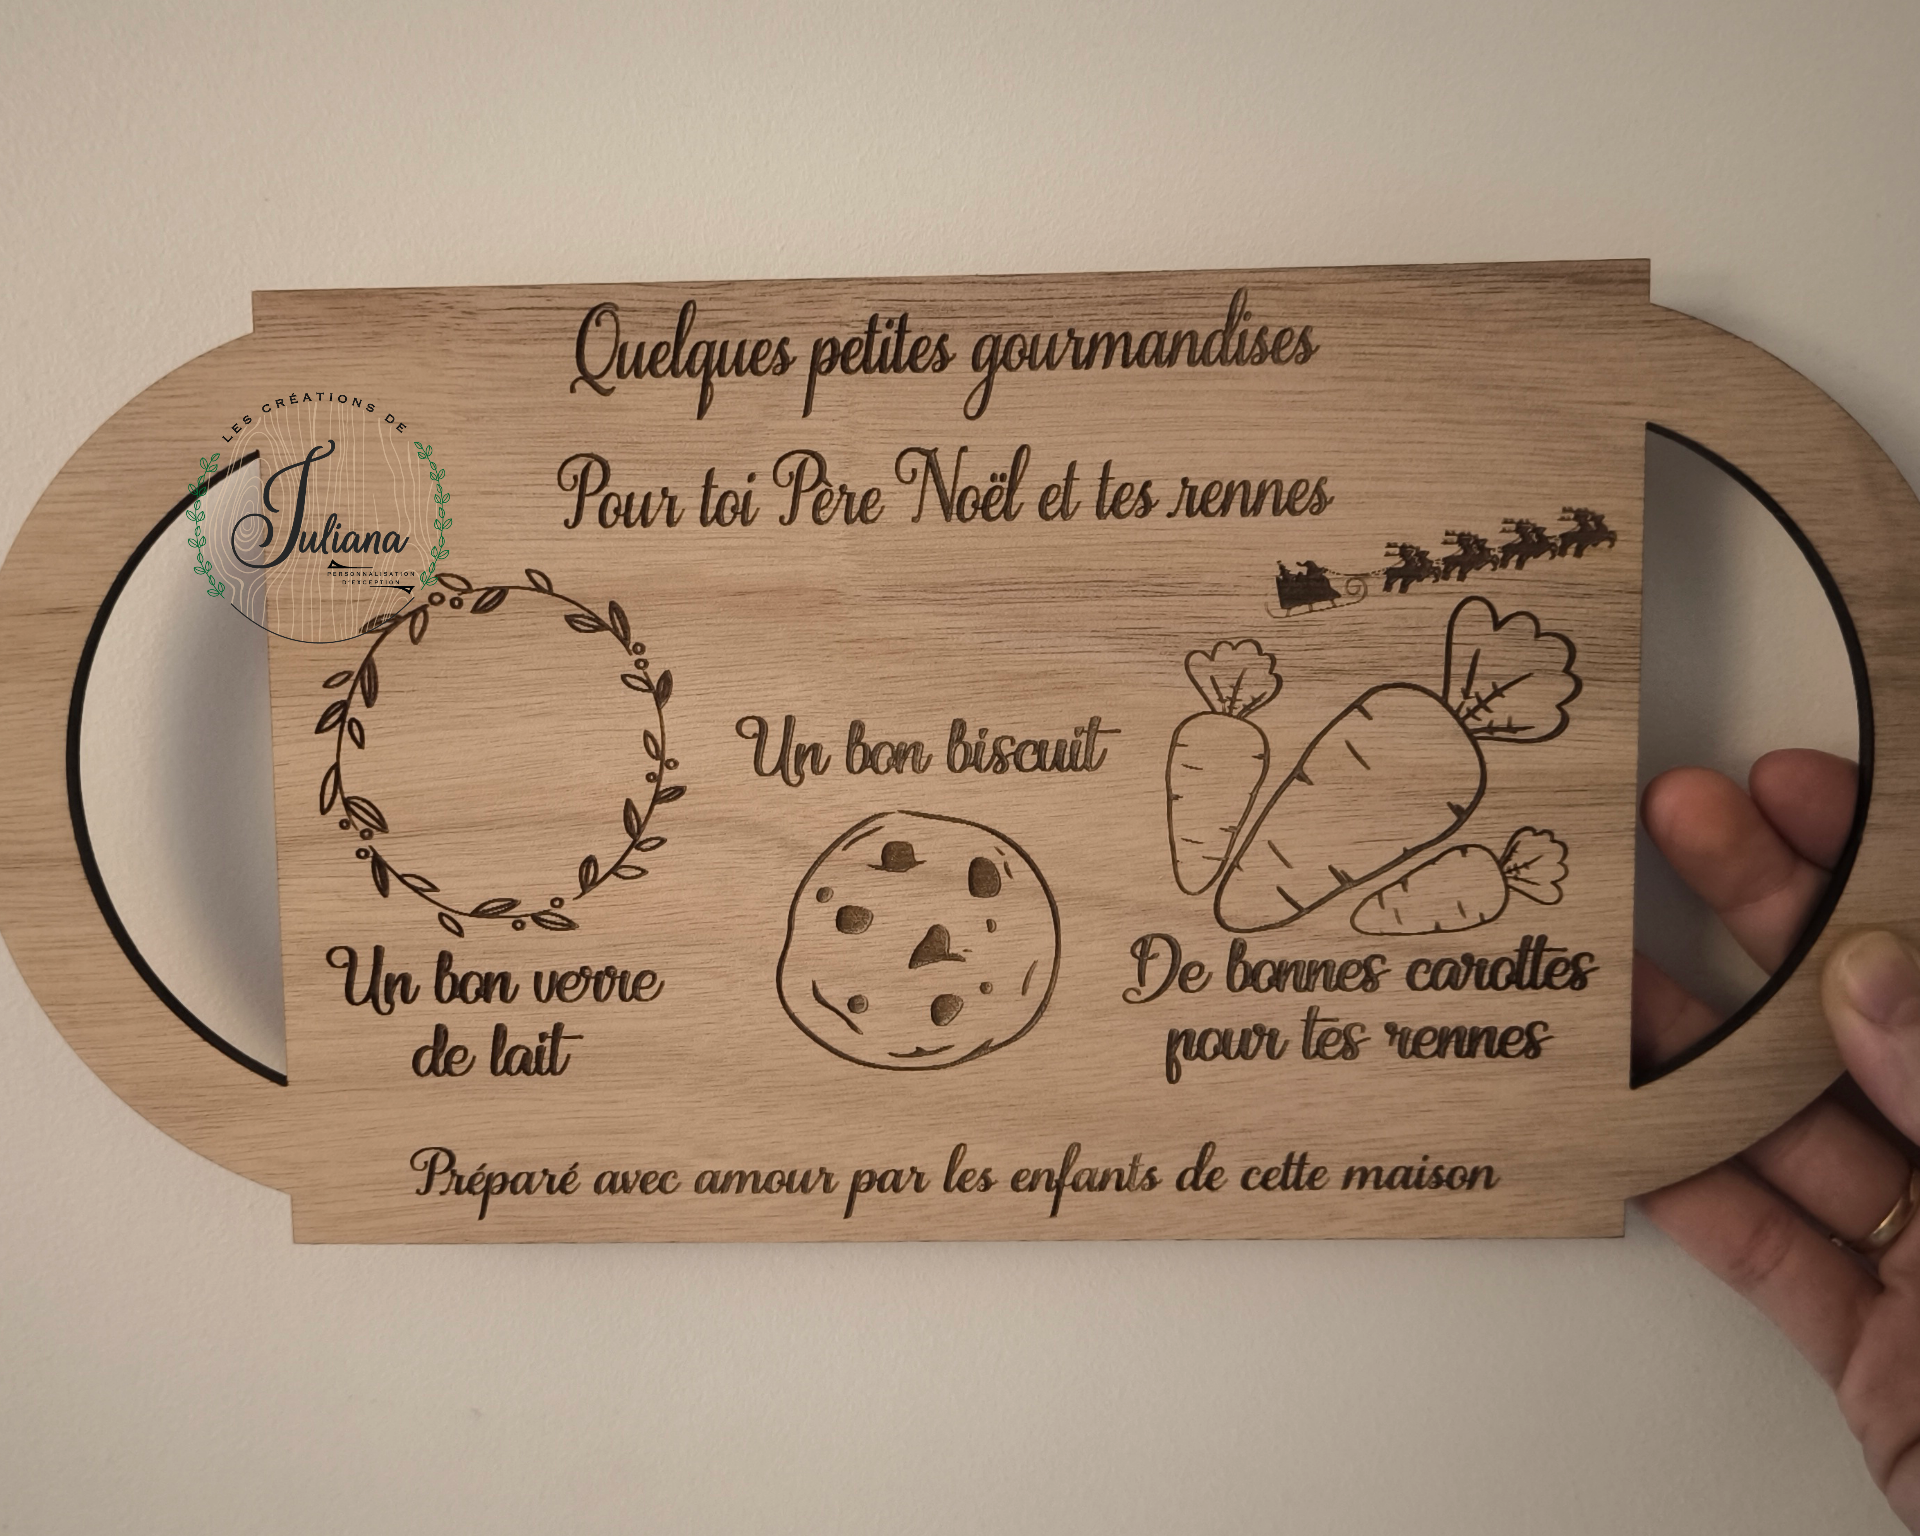 Quelques petites gourmandises
Pour toi Père Noël et tes rennes
LES CRÉATIONS DE
Juliana
PERSONNALISATION
D'EXCEPTION
Un bon biscuit
Un bon verre
de lait
De bonnes carottes
pour tes rennes
Préparé avec amour par les enfants de cette maison